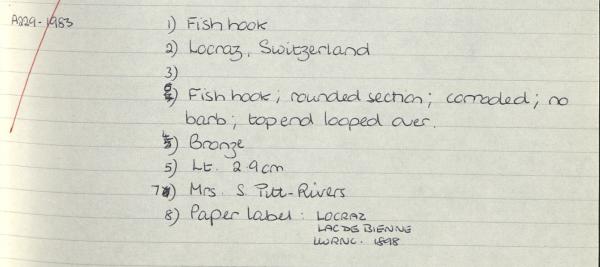 A229-1983
1) Fish hook
2) Locraz, Switzerland
3)
6) Fish hook; rounded section; corroded; no
barb; top end looped over.
4) Bronze
5) Lt. 2.9cm
7) Mrs. S. Pitt-Rivers
8) Paper label: LOCRAZ
LAC DE BIENNE
1898